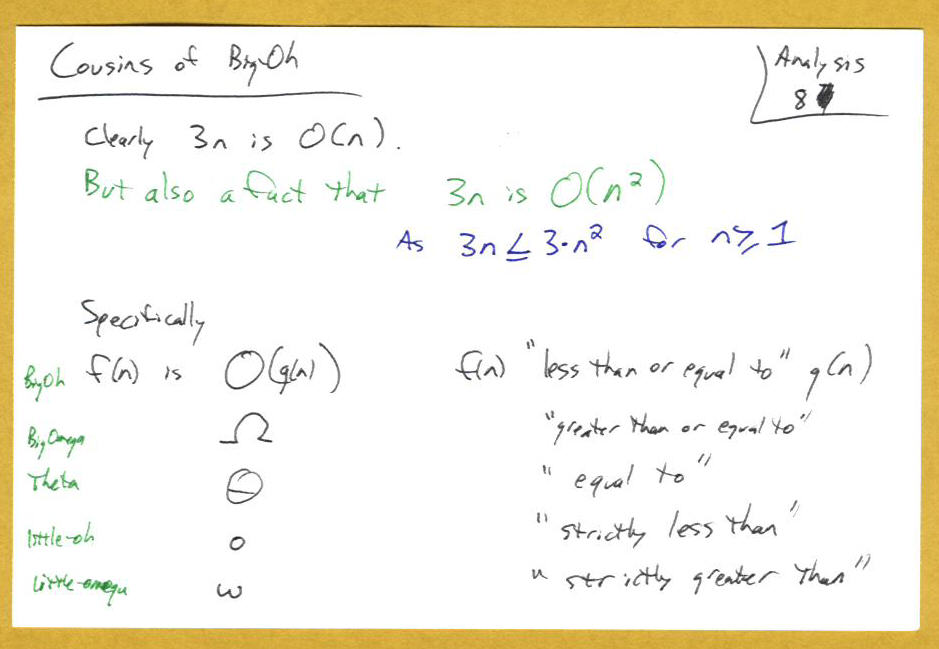 Cousins of Big-Oh
Analysis
8
Clearly 3n is O(n).
But also a fact that 3n is O(n²)
As 3n ≤ 3·n² for n ≥ 1
Specifically
BigOh f(n) is O(g(n)) f(n) "less than or equal to" g(n)
BigOmega Ω "greater than or equal to"
Theta Θ "equal to"
little-oh o "strictly less than"
Little-omega ω "strictly greater than"